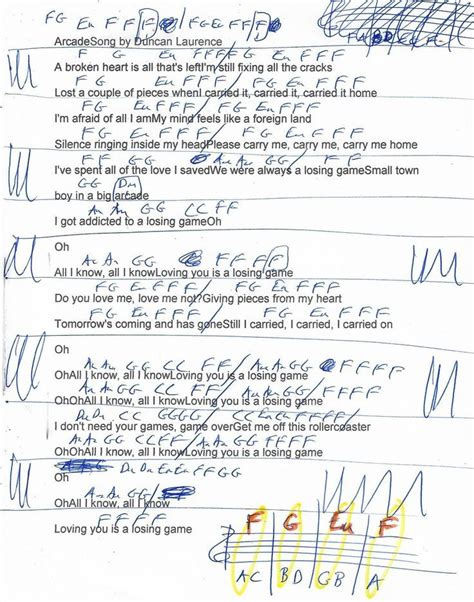 FG Em F F D / FG Em F F D
ArcadeSong by Duncan Laurence
F G Em FFF/FG Em FFF
A broken heart is all that's leftI'm still fixing all the cracks
F G Em FFF / FG Em FFF
Lost a couple of pieces whenI carried it, carried it, carried it home
FG Em FFF / FG Em FFF
I'm afraid of all I amMy mind feels like a foreign land
FG Em FFF / FG Em FFF
Silence ringing inside my headPlease carry me, carry me, carry me home
FF GG Am Am GG / FF
I've spent all of the love I savedWe were always a losing gameSmall town
GG Dm
boy in a big arcade
Am Am GG CC FF
I got addicted to a losing gameOh
Oh
Am Am GG FFFF
All I know, all I knowLoving you is a losing game
FG Em FFF / FG Em FFF
Do you love me, love me not?Giving pieces from my heart
FG Em FFF / FG Em FFF
Tomorrow's coming and has goneStill I carried, I carried, I carried on
Oh
Am Am GG CC FF / Am Am GG FFFF
OhAll I know, all I knowLoving you is a losing game
Am Am GG CC FF / Am Am GG FFFF
OhOhAll I know, all I knowLoving you is a losing game
Dm Dm CC GGGG / CC Em Em FFFF
I don't need your games, game overGet me off this rollercoaster
Am Am GG CC FF / Am Am GG FFFF
OhOhAll I know, all I knowLoving you is a losing game
Dm Dm Em Em FF GG
Oh
Am Am GG
OhAll I know, all I know
FFFF
Loving you is a losing game
F G Em F
AC BD GB A